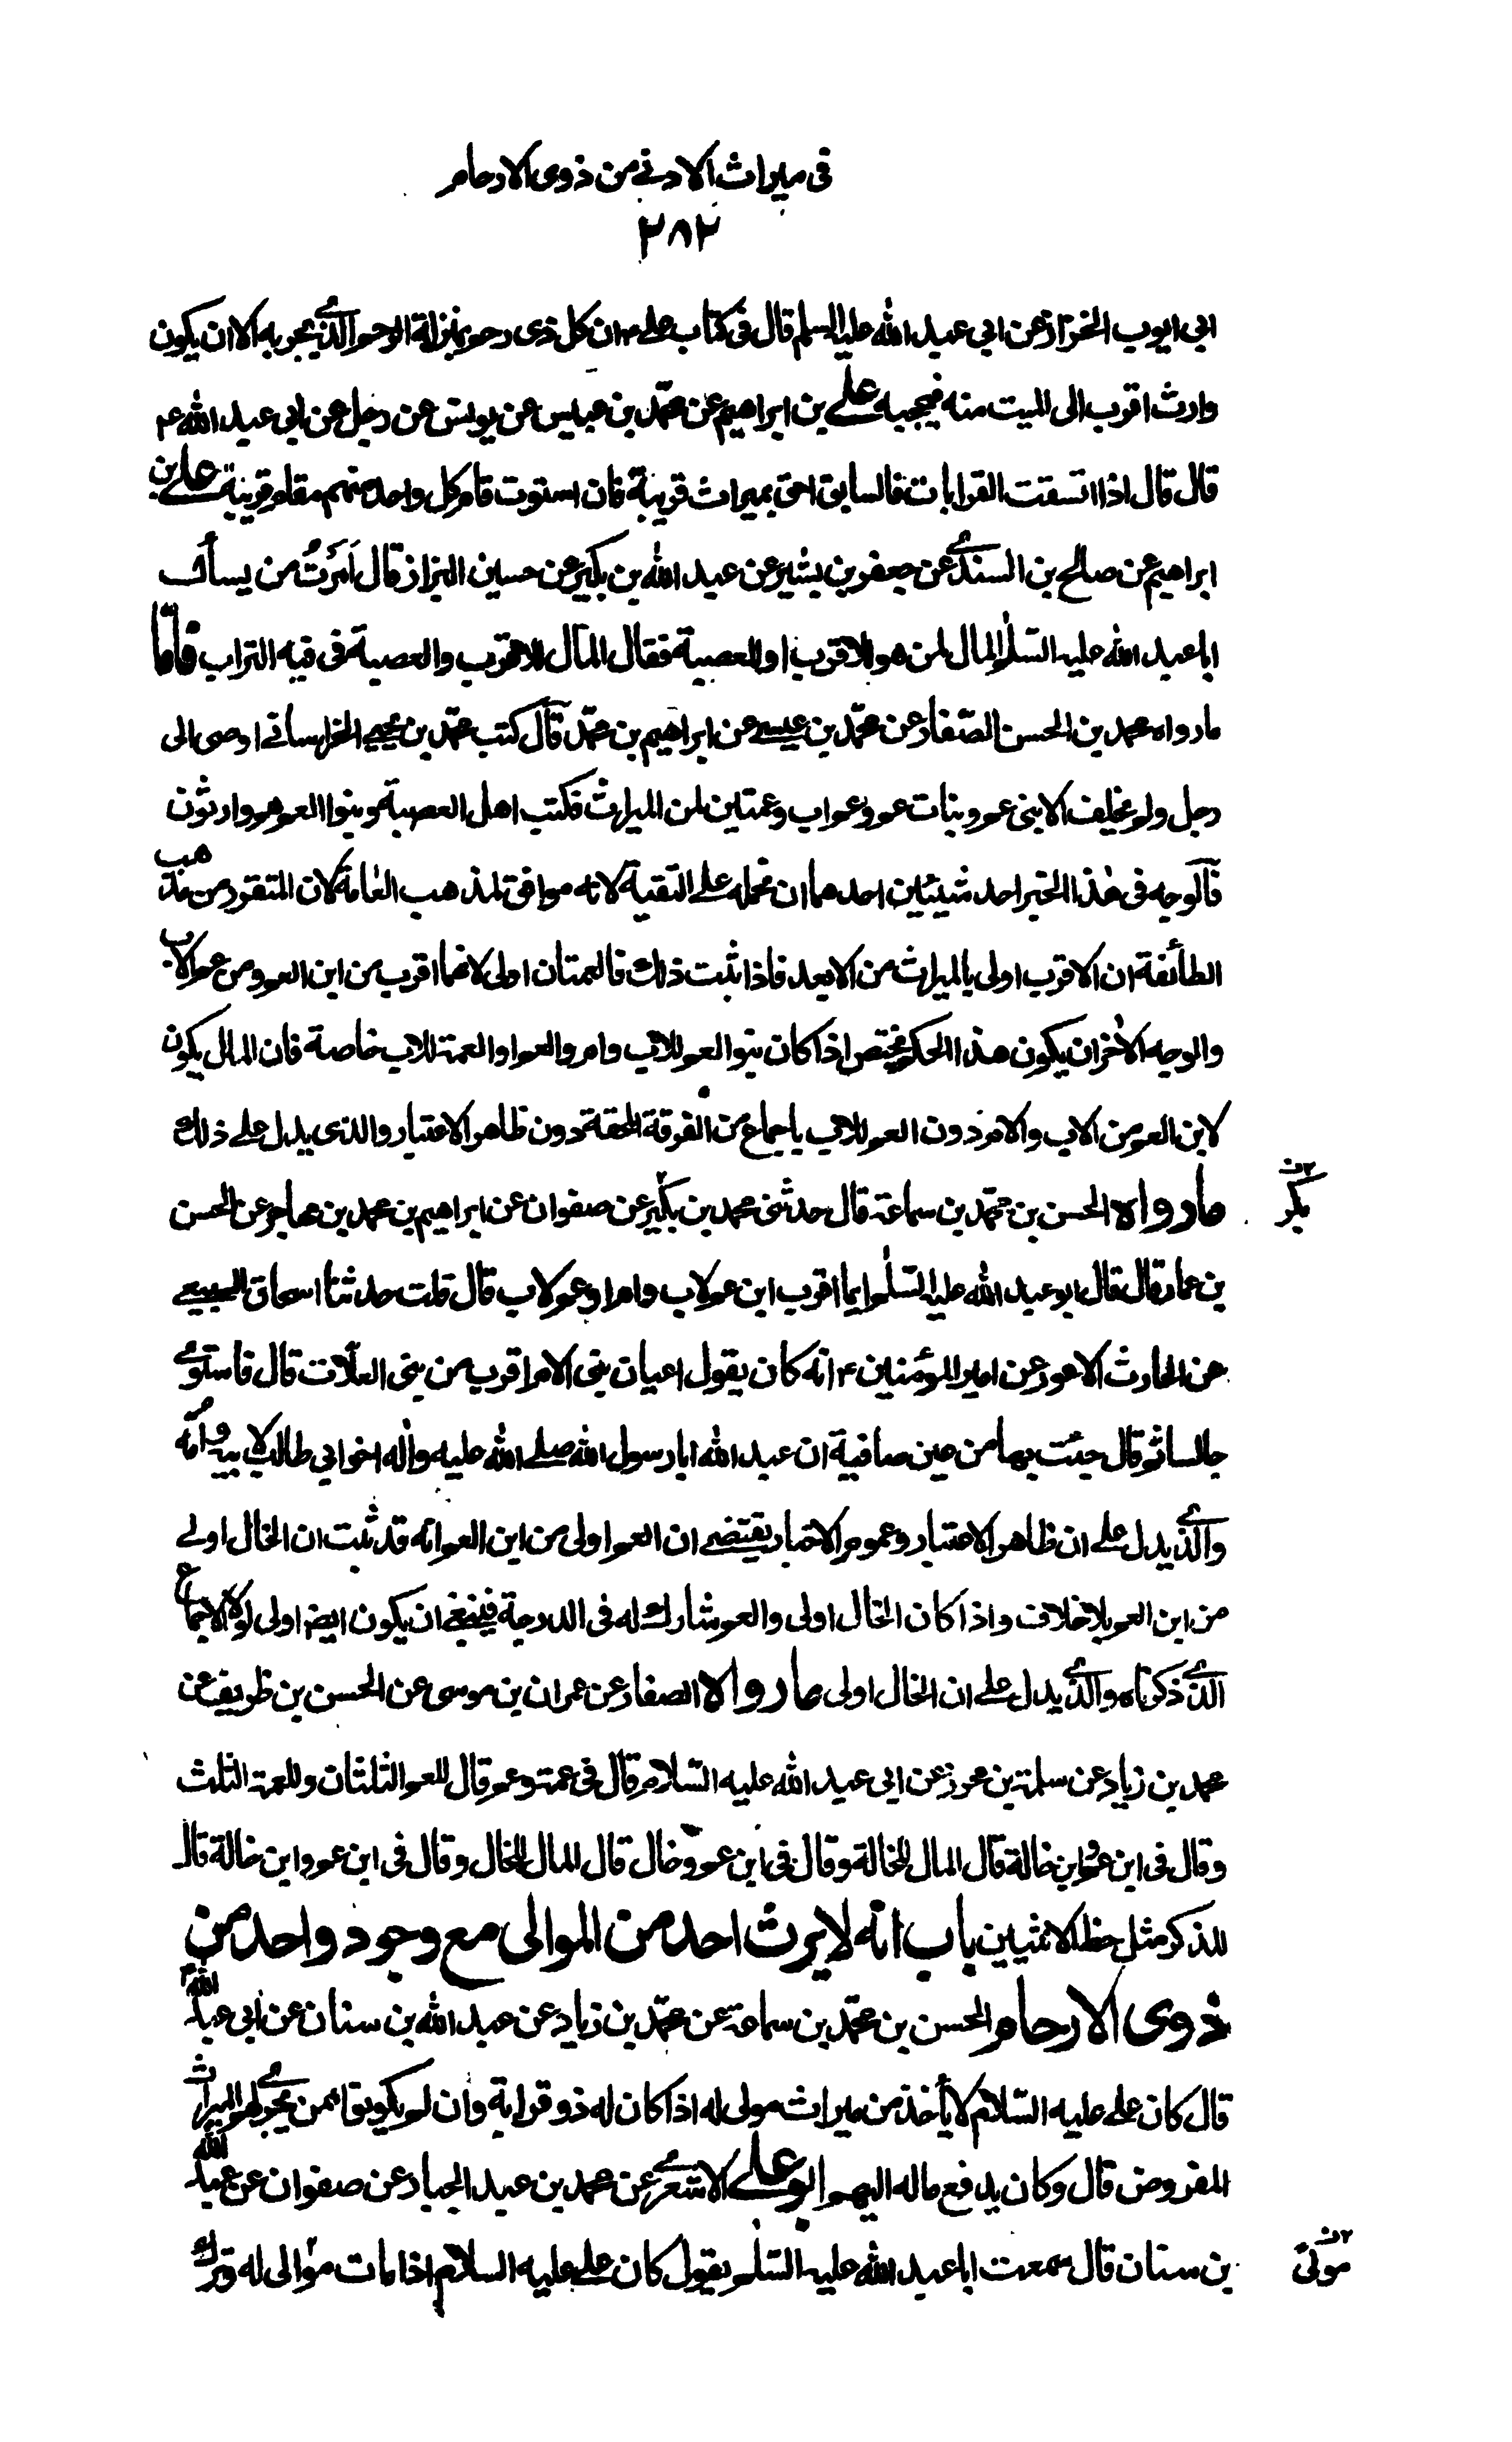 فى ميراث الادنى من ذوى الارحام
٢٨٢
ابى ايوب الخزاز عن ابى عبد الله عليه السلم قال فى كتاب على ۴ ان كل ذى رحم بمنزلة الرحم الذى يجر به الا ان يكون
وارث اقرب الى الميت منه فيحجبه على بن ابراهيم عن محمد بن عيسى عن يونس عن رجل عن ابى عبد الله ع
قال قال اذا اتسقت القرابات فالسابق احق بميراث قريبه فان استوت قام كل واحد منهم مقام قريبه على بن
ابراهيم عن صالح بن السندى عن جعفر بن بشير عن عبد الله بن بكير عن حسين البزاز قال اَمَرْتُ من يسأل
ابا عبد الله عليه السلم المال لمن هو للاقرب او للعصبة فقال المال للاقرب والعصبة فى فيه التراب فامّا
ما رواه محمد بن الحسن الصّفار عن محمّد بن عيسى عن ابراهيم بن محمّد قال كتب محمّد بن يحيى الخراسانى اوصى الى
رجل ولم يخلف الا بنى عم وبنات عم وعم اب وعمتين لمن الميراث فكتب اهل العصبة وبنوا العم هم وارثون
فالوجه فى هٰذا الخبر احد شيئين احدهما ان نحمله على التقية لانه موافق لمذهب العامة لان المتقرر من مذهب
الطائفة ان الاقرب اولى بالميراث من الابعد فاذا ثبت ذلك فالعمتان اولى لانهما اقرب من ابن العم ومن عم الاب
والوجه الآخر ان يكون هذا الحكم مختص اذا كان بنو العم للاب وام والعم او العمة للاب خاصة فان المال يكون
لابن العم من الاب والام دون العم للاب باجماع من الفرقة المحقة دون ظاهر الاعتبار والذى يدل على ذلك
ما رواه الحسن بن محمّد بن سماعة قال حدثنى محمد بن بكير عن صفوان عن ابراهيم بن محمد بن مهاجر عن الحسن
بكر ٢ن
بن عمار قال قال ابو عبد الله عليه السّلم ايما اقرب ابن عم لاب وام او عم لاب قال قلت حدثنا اسحاق السبيعى
عن الحارث الاعور عن امير المؤمنين ۴ انه كان يقول اعيان بنى الام اقرب من بنى العلّات قال فاستوى
جالسا ثم قال جئت بها من عين صافية ان عبد الله ابا رسول الله صلى الله عليه وآله اخو ابى طالب لابيه وامّه
والذى يدل على ان ظاهر الاعتبار وعموم الاخبار يقتضى ان العم اولى من ابن العم انه قد ثبت ان الخال اولى
من ابن العم بلا خلاف واذا كان الخال اولى والعم شارك له فى الدرجة فينبغى ان يكون ايضا اولى لولا الاجماع
الذى ذكرناه والذى يدل على ان الخال اولى ما رواه الصفار عن عمران بن موسى عن الحسن بن ظريف عن
محمد بن زياد عن سلمة بن محرز عن ابى عبد الله عليه السّلام قال فى عمة وعم قال للعم الثلثان وللعمة الثلث
وقال فى ابن عم وابن خالة قال المال للخالة وقال فى ابن عم وخال قال المال للخال وقال فى ابن عم وابن خالة قال
للذكر مثل حظ الانثيين باب انه لا يرث احد من الموالى مع وجود واحد من
ذوى الارحام الحسن بن محمّد بن سماعة عن محمّد بن زياد عن عبد الله بن سنان عن ابى عبد الله ۴
قال كان على عليه السّلام لا يأخذ من ميراث مولى له اذا كان له ذو قرابة وان لم يكونوا ممن يجرى لهم الميراث
المفروض قال وكان يدفع ماله اليهم ابو على الاشعرى عن محمد بن عبد الجبار عن صفوان عن عبد الله
بن سنان قال سمعت ابا عبد الله عليه السّلم يقول كان على عليه السلام اذا مات موالى له وترك
مولىً ٢ن